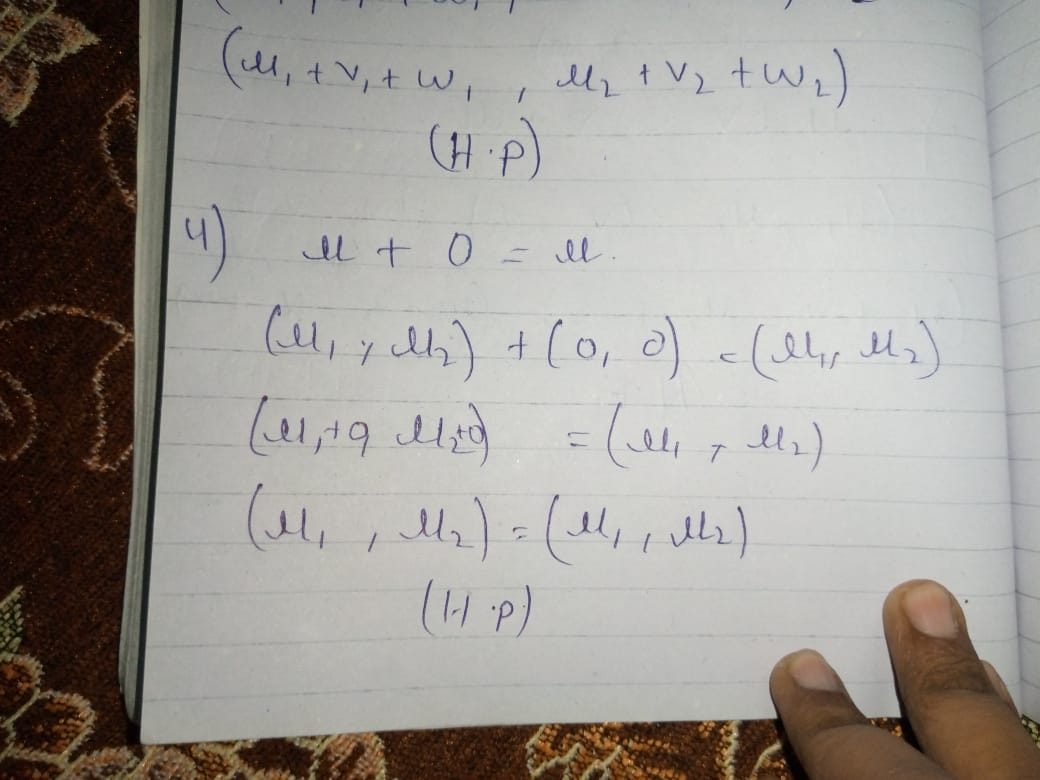 (u₁ + v₁ + w₁ , u₂ + v₂ + w₂)
(H.p)
4) u + 0 = u.
(u₁, u₂) + (0, 0) = (u₁, u₂)
(u₁+0, u₂+0) = (u₁, u₂)
(u₁, u₂) = (u₁, u₂)
(H.p)